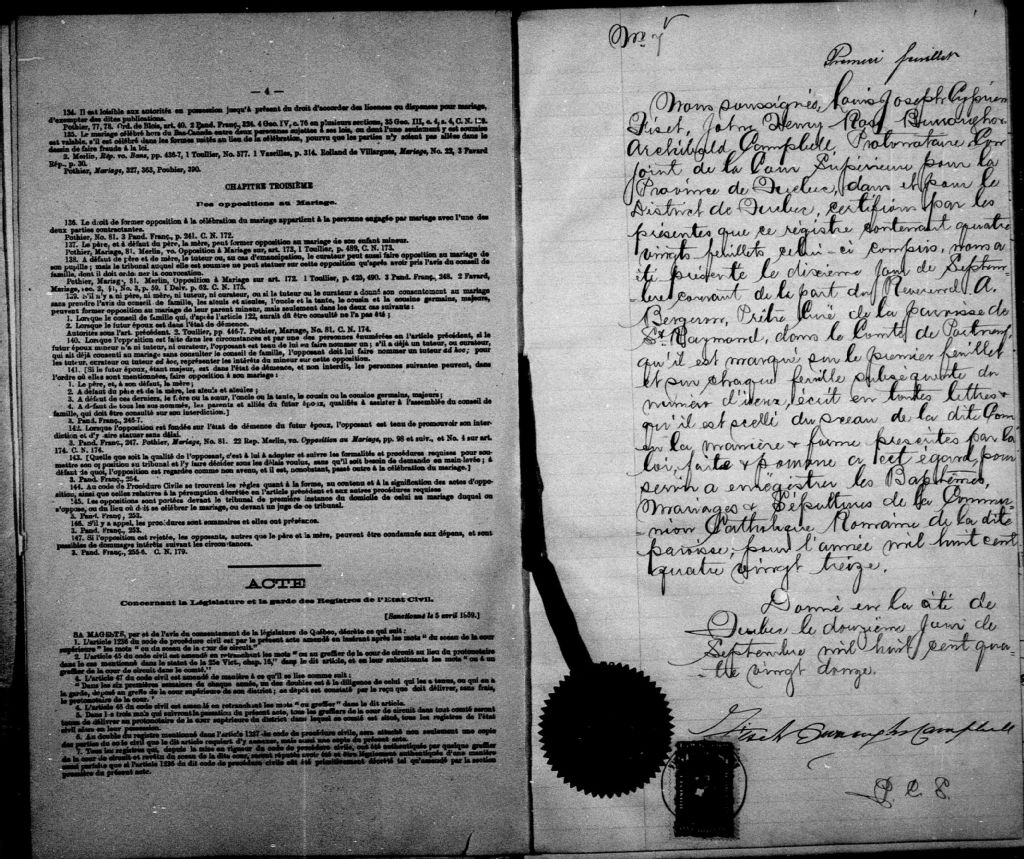 — 4 —
134. Il est loisible aux autorités en possession jusqu'à présent du droit d'accorder des licences ou dispenses pour mariage,
d'exempter des dites publications.
Pothier, 77, 78. Ord. de Blois, art. 40. 2 Pand. Franç., 234. 4 Geo. IV, c. 76 en plusieurs sections, 35 Geo. III, c. 4, s. 4, C. N.
135. Le mariage célébré hors du Bas-Canada entre deux personnes sujettes à ses lois, ou dont l'une seulement y est soumise
est valable, s'il est célébré dans les formes usitées au lieu de la célébration, pourvu que les parties n'y aient pas allées dans le
dessin de faire fraude à la loi.
2. Merlin, Rép. vo. Bans, pp. 435-7, 1 Toullier, No. 577. 1 Vazeilles, p. 314. Rolland de Villargues, Mariage, No. 22, 3 Favard
Rép., p. 30.
Pothier, Mariage, 327, 363, Pothier, 390.
CHAPITRE TROISIÈME
Des oppositions au Mariage.
136. Le droit de former opposition à la célébration du mariage appartient à la personne engagée par mariage avec l'une des
deux parties contractantes.
Pothier, No. 81. 3 Pand. Franç., p. 241. C. N. 172.
137. Le père, et à défaut du père, la mère, peut former opposition au mariage de son enfant mineur.
Pothier, Mariage, 81. Merlin, vo. Opposition à Mariage sur, art. 173, 1 Toullier, p. 489, C. N. 173.
138. A défaut de père et de mère, le tuteur ou, au cas d'émancipation, le curateur peut aussi faire opposition au mariage de
son pupille; mais le tribunal auquel elle est soumise ne peut statuer sur cette opposition qu'après avoir pris l'avis du conseil de
famille, dont il doit ordonner la convocation.
Pothier, Mariage, 81. Merlin, Opposition à Mariage sur art. 172. 1 Toullier, p. 420, 490. 3 Pand. Franç. 248. 2 Favard,
Mariage, sec. 2, §1, No. 3, p. 59. 1 Delv. p. 62. C. N. 175.
139. S'il n'y a ni père, ni mère, ni tuteur, ni curateur, ou si le tuteur ou le curateur a donné son consentement au mariage
sans prendre l'avis du conseil de famille, les aïeuls et aïeules, l'oncle et la tante, le cousin et la cousine germains, majeurs,
peuvent former opposition au mariage de leur parent mineur, mais seulement dans les deux cas suivants:
1. Lorsque le conseil de famille qui, d'après l'article 122, aurait dû être consulté ne l'a pas été;
2. Lorsque le futur époux est dans l'état de démence.
Autorités sous l'art. précédent. 2. Toullier, pp 446-7. Pothier, Mariage, No. 81. C. N. 174.
140. Lorsque l'opposition est faite dans les circonstances et par une des personnes énumérées en l'article précédent, si le
futur époux mineur n'a ni tuteur, ni curateur, l'opposant est tenu de lui en faire nommer un; s'il a déjà un tuteur, ou curateur,
qui ait déjà consenti au mariage sans consulter le conseil de famille, l'opposant doit lui faire nommer un tuteur ad hoc; pour
les tuteur, curateur ou tuteur ad hoc, représenter les intérêts du mineur sur cette opposition.
141. [Si le futur époux, étant majeur, est dans l'état de démence, et non interdit, les personnes suivantes peuvent, dans
l'ordre où elles sont mentionnées, faire opposition à son mariage:
1. Le père, et, à son défaut, la mère;
2. A défaut du père et de la mère, les aïeuls et aïeules;
3. A défaut de ces derniers, le frère ou la sœur, l'oncle ou la tante, le cousin ou la cousine germains, majeurs;
4. A défaut de tous les sus-nommés, les parents et alliés du futur époux, qualifiés à assister à l'assemblée du conseil de
famille, qui doit être consulté sur son interdiction.]
3. Pand. Franç., 246-7.
142. Lorsque l'opposition est fondée sur l'état de démence du futur époux, l'opposant est tenu de promouvoir son inter-
diction et d'y faire statuer sans délai.
3. Pand. Franç., 247. Pothier, Mariage, No. 81. 22 Rep. Merlin, vo. Opposition au Mariage, pp. 98 et suiv., et No. 4 sur art.
174. C. N. 174.
143. [Quelle que soit la qualité de l'opposant, c'est à lui à adopter et suivre les formalités et procédures requises pour sou-
mettre son opposition au tribunal et l'y faire décider sous les délais voulus, sans qu'il soit besoin de demande en main-levée; à
défaut de quoi, l'opposition est regardée comme non avenue, et il est, nonobstant, passé outre à la célébration du mariage.]
3. Pand. Franç., 254.
144. Au code de Procédure Civile se trouvent les règles quant à la forme, au contenu et à la signification des actes d'oppo-
sition, ainsi que celles relatives à la péremption décrétée en l'article précédent et aux autres procédures requises
145. Les oppositions sont portées devant le tribunal de première instance du domicile de celui au mariage duquel on
s'oppose, ou du lieu où doit se célébrer le mariage, ou devant un juge de ce tribunal.
3. Pand. Franç., 253.
146. S'il y a appel, les procédures sont sommaires et elles ont préséance.
3. Pand. Franç., 253.
147. Si l'opposition est rejetée, les opposants, autres que le père et la mère, peuvent être condamnés aux dépens, et sont
passibles de dommages intérêts suivant les circonstances.
3. Pand. Franç., 255-6. C. N. 179.
ACTE
Concernant la Législature et la garde des Registres de l'Etat Civil.
[Sanctionné le 5 avril 1889.]
SA MAGESTÉ, par et de l'avis du consentement de la législature de Québec, décrète ce qui suit:
1. L'article 1236 du code de procédure civil est par le présent acte amendé en insérant après les mots "du sceau de la cour
supérieure" les mots "ou du sceau de la cour de circuit."
2. L'article 45 du code civil est amendé en retranchant les mots "ou au greffier de la cour de circuit au lieu du protonotaire
dans le cas mentionné dans le statut de la 25e Vict., chap. 16," dans le dit article, et en leur substituant les mots "ou à un
greffier de la cour de circuit dans le comté."
4. L'article 47 du code civil est amendé de manière à ce qu'il se lise comme suit:
"Dans les dix premières semaines de chaque année, un des doubles est à la diligence de celui qui les a tenus, ou qui en a
la garde, déposé au greffe de la cour supérieure de son district; ce dépôt est constaté par le reçu que doit délivrer, sans frais,
le protonotaire de la cour."
4. L'article 48 du code civil est amendé en retranchant les mots "ou greffier" dans le dit article.
Nº 7
Premier feuillet
Nous soussignés, Louis Joseph Cyprien
Fiset, John Henry Ross Burroughs
Archibald Campbell Protonotaire Con
joint de la Cour Supérieure pour la
Province de Quebec, dans et pour le
District de Quebec, certifions par les
présentes que ce régistre contenant quatre
vingts feuillets celui-ci compris, nous a
été présenté le dixième jour de Septem
bre courant de la part du Révérend A.
Bergeron, Prêtre Curé de la paroisse de
St Raymond, dans le Comté de Portneuf,
qu'il est marqué sur le premier feuillet
et sur chaque feuille subséquente du
numéro d'iceux, écrit en toutes lettres &
qu'il est scellé du sceau de la dite Cour
en la manière & forme prescrites par la
loi, faite & pourvue à cet égard, pour
servir à enrégistrer les Baptêmes,
Mariages & Sépultures de la Commu-
nion Catholique Romaine de la dite
paroisse, pour l'année mil huit cent
quatre vingt treize.
Donné en la cité de
Quebec le douzième jour de
Septembre mil huit cent qua-
-tre vingt douze.
Fiset Burroughs Campbell
P. C. S.